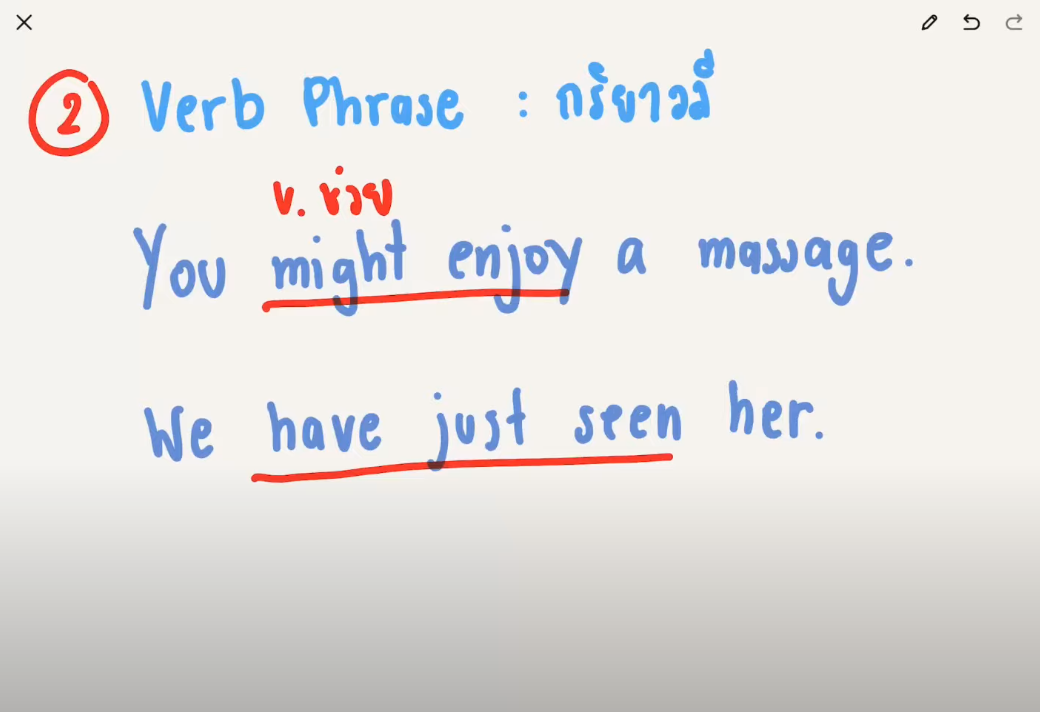 2 Verb Phrase : กริยาวลี
v. ช่วย
You might enjoy a massage.
We have just seen her.